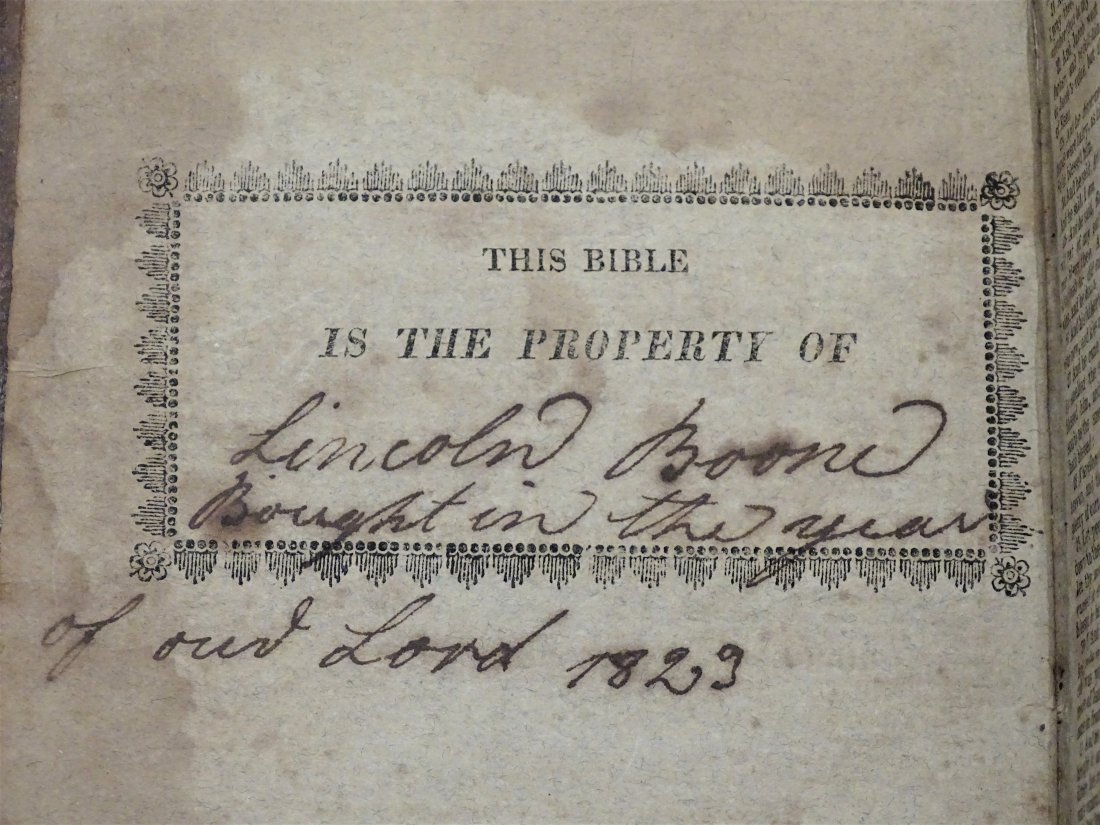 THIS BIBLE
IS THE PROPERTY OF
Lincoln Boone
Bought in the year
of our Lord 1823